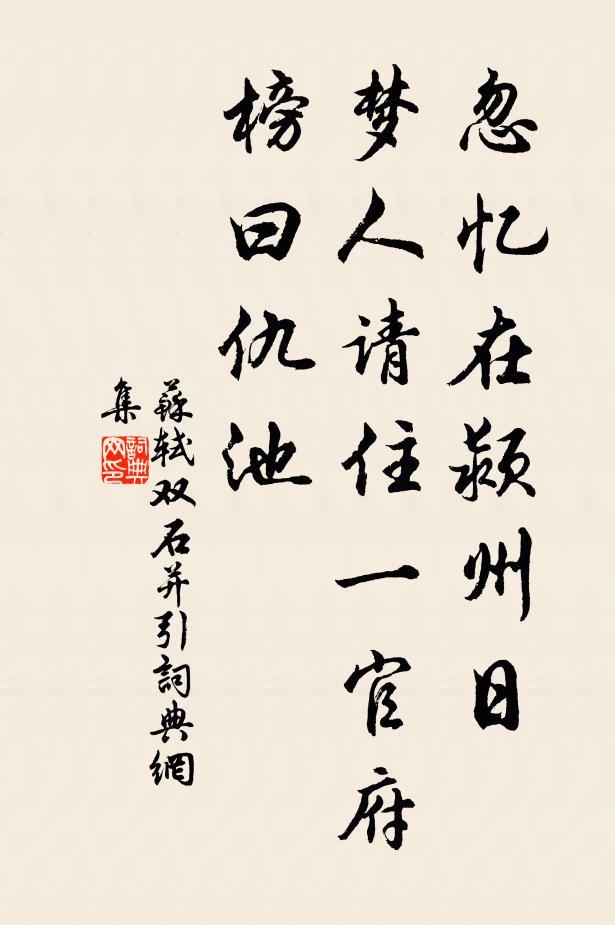 忽忆在颍州日
梦人请住一官府
榜曰仇池
蘇轼双石并引詞典網
集
詞典
网印